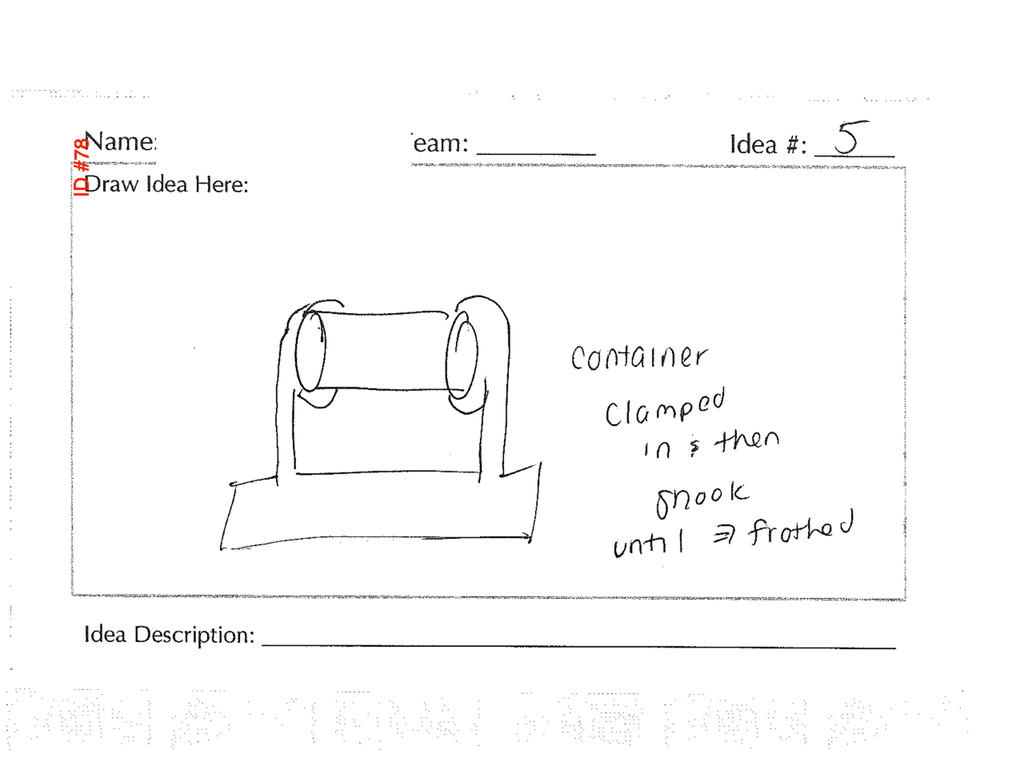 ID #78
Name:
eam:
Idea #: 5
Draw Idea Here:
container
clamped
in & then
shook
until frothed
Idea Description: